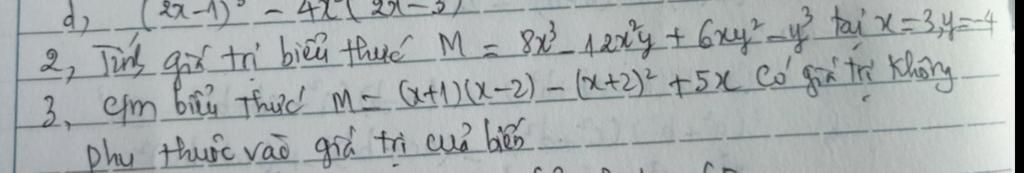 d, (2x-1)³ - 4x(2x-3)
2, Tính giá trị biểu thức M = 8x³ - 12x²y + 6xy² - y³ tại x = 3, y = -4
3, c/m biểu thức M = (x+1)(x-2) - (x+2)² + 5x có giá trị không
phụ thuộc vào giá trị của biến